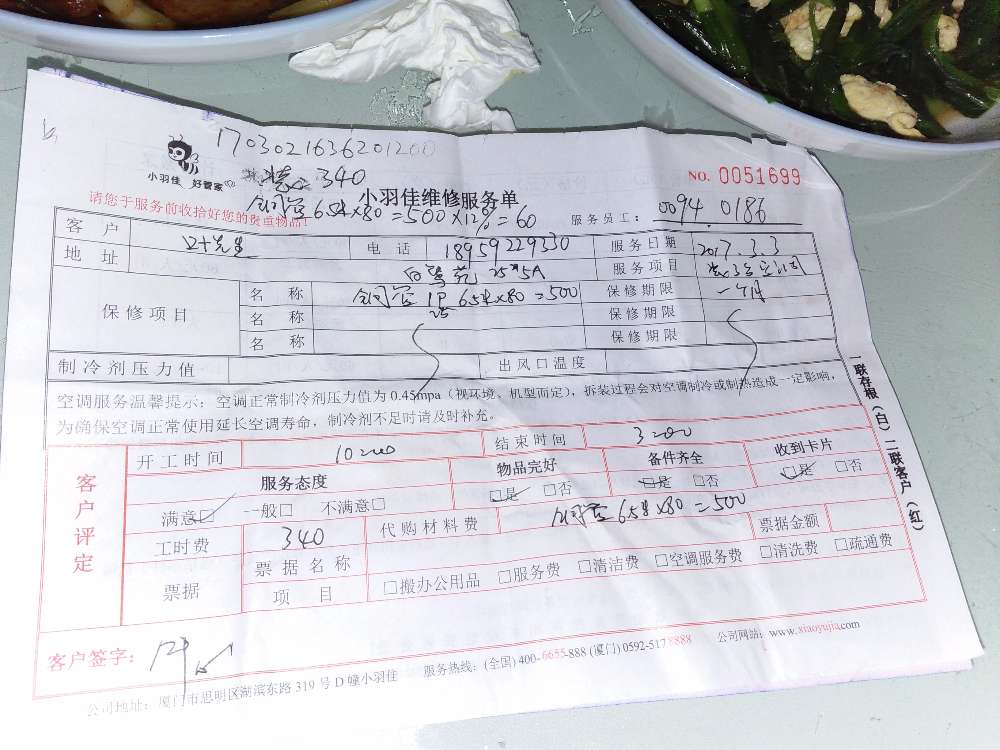 1703021636201200
340
小羽佳 好管家
小羽佳维修服务单
NO. 0051699
请您于服务前收拾好您的贵重物品!
铜管 6.5米×80=500×12%=60
服务员工: 0094 0186
客 户 叶先生 电 话 18959229330 服务日期 2017.3.3
地 址 白鹭苑 25#5A 服务项目
保修项目
名 称 铜管 1P 6.5米×80=500 保修期限 一个月
名 称 保修期限
名 称 保修期限
制冷剂压力值 出风口温度
空调服务温馨提示: 空调正常制冷剂压力值为 0.45mpa (视环境、机型而定), 拆装过程会对空调制冷或制热造成一定影响,
为确保空调正常使用延长空调寿命, 制冷剂不足时请及时补充。
客户评定
开工时间 10:00 结束时间 3:00
服务态度 物品完好 备件齐全 收到卡片
满意☑ 一般□ 不满意□ ☑是 □否 ☑是 □否 ☑是 □否
工时费 340 代购材料费 铜管 6.5米×80=500
票据 票据名称 票据金额
项 目 □搬办公用品 □服务费 □清洁费 □空调服务费 □清洗费 □疏通费
客户签字:
公司地址: 厦门市思明区湖滨东路 319 号 D 幢小羽佳 服务热线: (全国) 400-6655-888 (厦门) 0592-5178888 公司网站: www.xiaoyujia.com
一联存根(白) 二联客户(红)